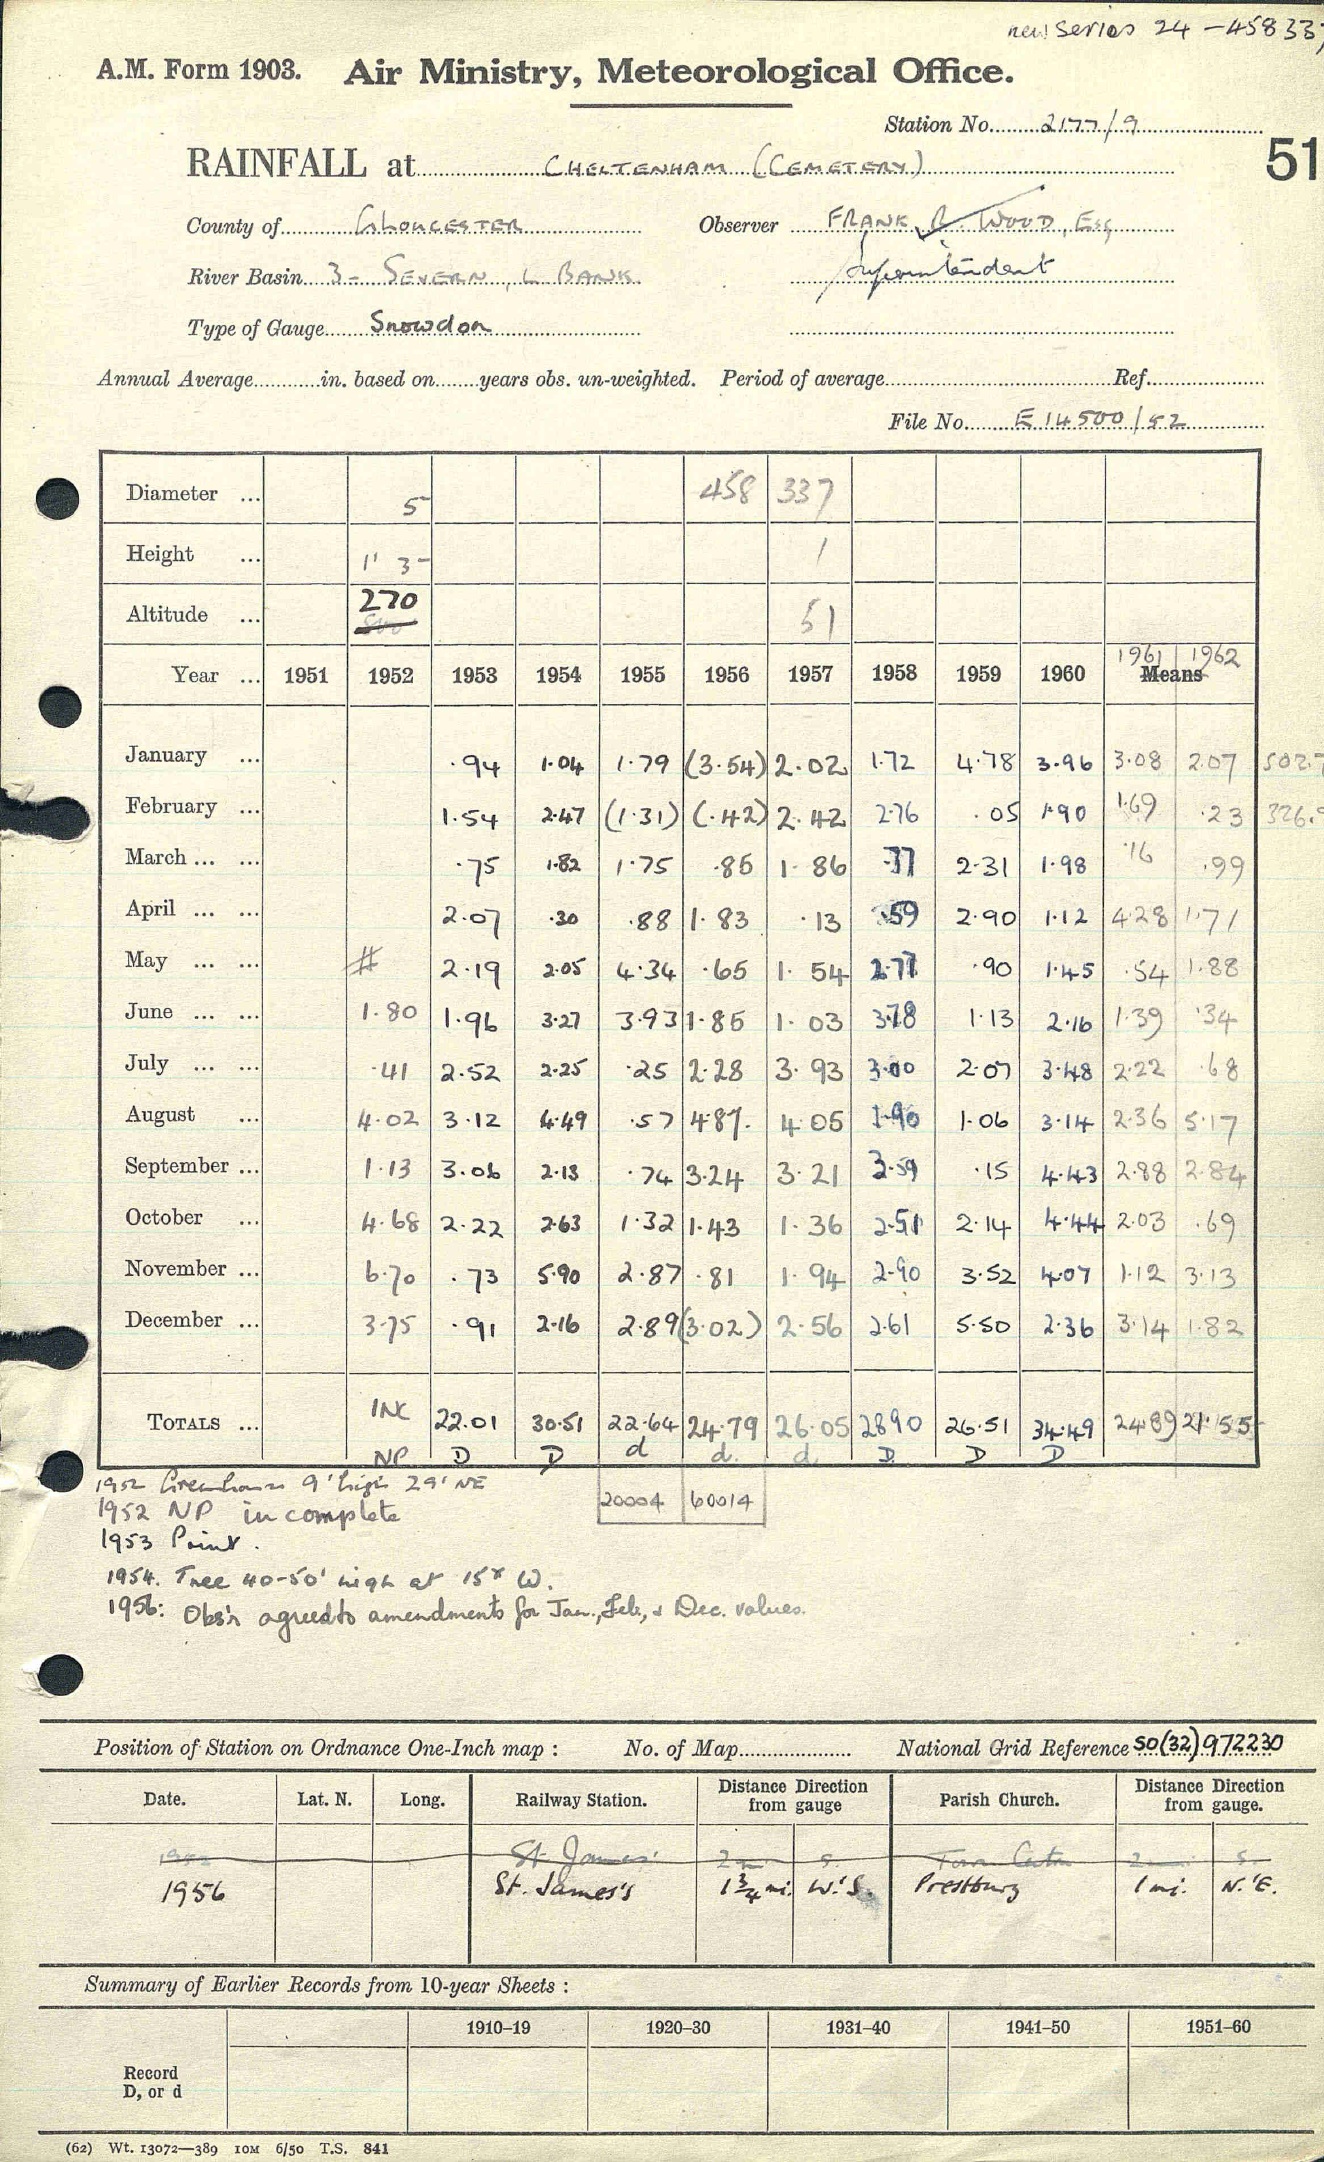 new series 24 - 458337
A.M. Form 1903. Air Ministry, Meteorological Office.
Station No. 2177/9
51
RAINFALL at CHELTENHAM (CEMETERY)
County of GLOUCESTER Observer FRANK R. WOOD, Esq
River Basin 3 - SEVERN, L BANK Superintendent
Type of Gauge Snowdon
Annual Average in. based on years obs. un-weighted. Period of average Ref.
File No. E 14500/52
Diameter ... 5 458 337
Height ... 1' 3" 1
Altitude ... 270 51
1961 1962
Year ... 1951 1952 1953 1954 1955 1956 1957 1958 1959 1960 Means
January ... .94 1.04 1.79 (3.54) 2.02 1.72 4.78 3.96 3.08 2.07 502.7
February ... 1.54 2.47 (1.31) (.42) 2.42 2.76 .05 1.90 1.69 .23 326.9
March ... ... .75 1.82 1.75 .85 1.86 .77 2.31 1.98 .16 .99
April ... ... 2.07 .30 .88 1.83 .13 .59 2.90 1.12 4.28 1.71
May ... ... # 2.19 2.05 4.34 .65 1.54 2.77 .90 1.45 .54 1.88
June ... ... 1.80 1.96 3.27 3.93 1.85 1.03 3.78 1.13 2.16 1.39 .34
July ... ... .41 2.52 2.25 .25 2.28 3.93 3.00 2.07 3.48 2.22 .68
August ... 4.02 3.12 4.49 .57 4.87. 4.05 1.90 1.06 3.14 2.36 5.17
September ... 1.13 3.06 2.13 .74 3.24 3.21 3.59 .15 4.43 2.88 2.84
October ... 4.68 2.22 2.63 1.32 1.43 1.36 2.51 2.14 4.44 2.03 .69
November ... 6.70 .73 5.90 2.87 .81 1.94 2.90 3.52 4.07 1.12 3.13
December ... 3.75 .91 2.16 2.89 (3.02) 2.56 2.61 5.50 2.36 3.14 1.82
TOTALS ... INC 22.01 30.51 22.64 24.79 26.05 28.90 26.51 34.49 24.89 21.55
NP D D d d. d D D D
1952 Greenhouse 9' high 29' NE 20004 60014
1952 NP incomplete
1953 Point.
1954. Tree 40-50' high at 15x W.
1956: Obs'r agreed to amendments for Jan., Feb., & Dec. values.
Position of Station on Ordnance One-Inch map : No. of Map National Grid Reference SO(32)972230
Date. Lat. N. Long. Railway Station. Distance Direction from gauge Parish Church. Distance Direction from gauge.
1952 St James' 2 m S. Town Centre 2 m S.
1956 St. James's 1 3/4 mi. W.'S. Prestbury 1 mi. N.'E.
Summary of Earlier Records from 10-year Sheets :
1910–19 1920–30 1931–40 1941–50 1951–60
Record
D, or d
(62) Wt. 13072—389 10M 6/50 T.S. 841